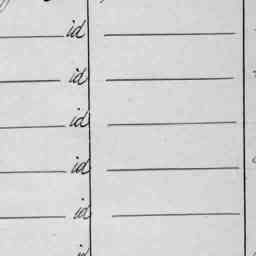 id
id
id
id
id
id